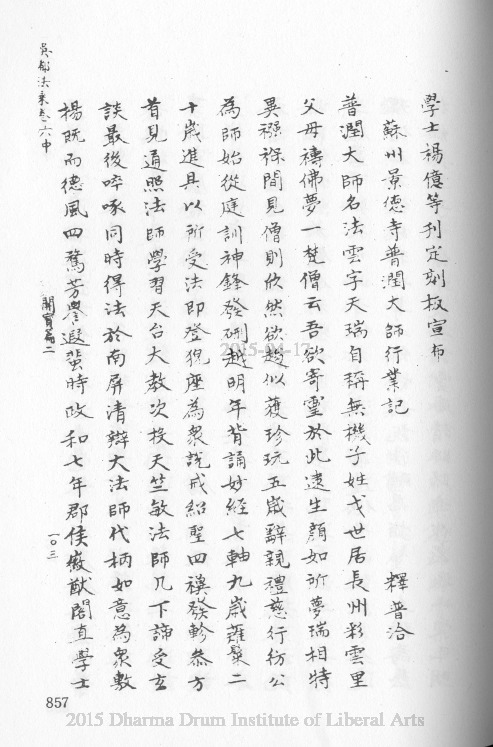 學士楊億等刊定刻板宣布
蘇州景德寺普潤大師行業記
釋普洽
普潤大師名法雲字天瑞自稱無機子姓戈世居長州彩雲里
父母禱佛夢一梵僧云吾欲寄靈於此逮生顏如所夢瑞相特
異襁褓間見僧則欣然欲趨似獲珍玩五歲辭親禮慈行彷公
為師始從庭訓神鋒發硎越明年背誦妙經七軸九歲薙髮二
十歲進具以所受法即登猊座為眾說戒紹聖四禩發軫參方
首見通照法師學習天台大教次投天竺敏法師几下諦受玄
談最後啐啄同時得法於南屏清辯大法師代柄如意為眾敷
揚既而德風四騖芳譽遐蜚時政和七年郡侯徽猷閣直學士
吳都法乘卷六中
開寶篇二
一〇三
857
2015-04-17
2015 Dharma Drum Institute of Liberal Arts